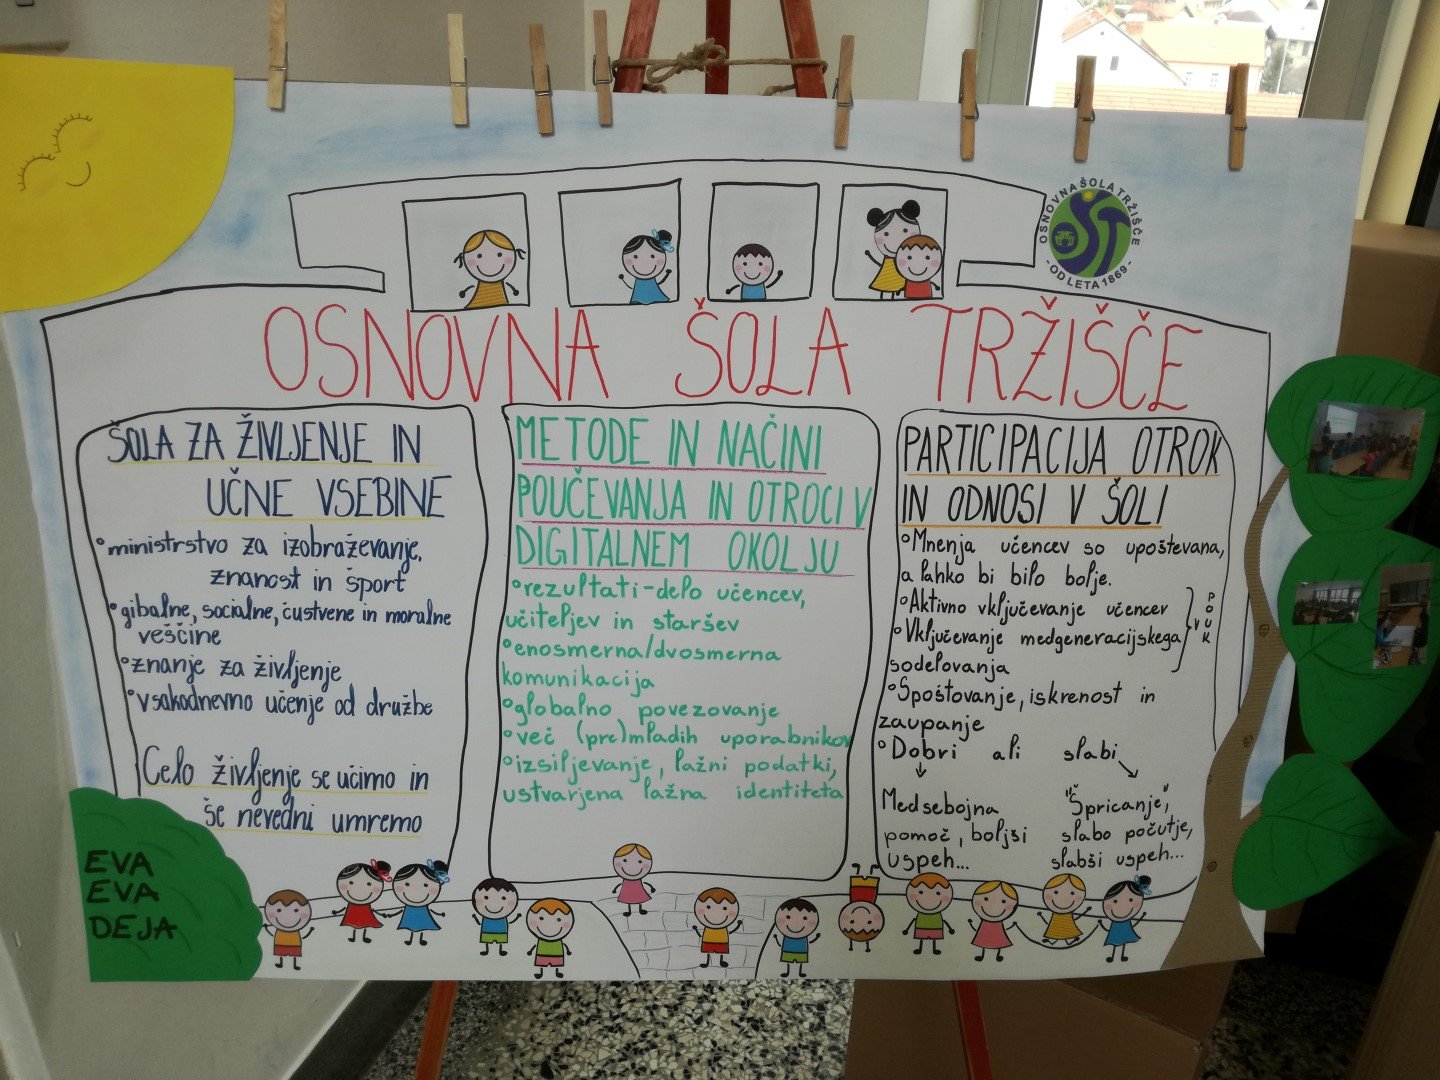 OSNOVNA ŠOLA TRŽIŠČE
- OD LETA 1869 -
OSNOVNA ŠOLA TRŽIŠČE
ŠOLA ZA ŽIVLJENJE IN
UČNE VSEBINE
°ministrstvo za izobraževanje,
znanost in šport
°gibalne, socialne, čustvene in moralne
veščine
°znanje za življenje
°vsakodnevno učenje od družbe
Celo življenje se učimo in
še nevedni umremo
METODE IN NAČINI
POUČEVANJA IN OTROCI V
DIGITALNEM OKOLJU
°rezultati-delo učencev,
učiteljev in staršev
°enosmerna/dvosmerna
komunikacija
°globalno povezovanje
°več (pre)mladih uporabnikov
°izsiljevanje, lažni podatki,
ustvarjena lažna identiteta
PARTICIPACIJA OTROK
IN ODNOSI V ŠOLI
°Mnenja učencev so upoštevana,
a lahko bi bilo bolje.
°Aktivno vključevanje učencev
°Vključevanje medgeneracijskega
sodelovanja
POUK
V
°Spoštovanje, iskrenost in
zaupanje
°Dobri ali slabi
Medsebojna
pomoč, boljši
uspeh...
"Špricanje",
slabo počutje,
slabši uspeh...
EVA
EVA
DEJA